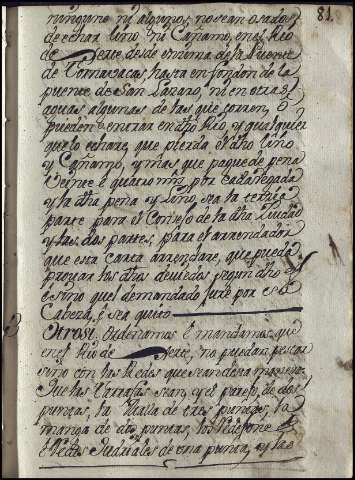 81.
ninguno ni algunos, no sean osados
de echar Lino, ni Cañamo, en el Rio
de Xerte desde encima de la Puente
de Tornavacas, hasta en fondon de la
puente de San Lazaro, ni en otras
aguas algunas de las que corren, o
pueden entrar en dho Rio, y qualquier
que lo echare, que pierda el dho Lino
y Cañamo, y mas que pague de pena
Veinte è quatro mrs por cada vegada
y la dha pena, y Lino, sea la tercia
parte para el Consejo de la dha Ciudad
y las dos partes, para el arrendador
que esta carta arrendare, que pueda
provar los dhos devedos segun dho es
è sino que el demandado jure por su
Cabeza, è sea quito
Otrosi. Ordenamos è mandamos que
en el Rio de Xerte, no puedan pescar
sino con las Redes que
Que las sean, y el parejo, de dos
puntas, la de tres puntas, la
manga de dos puntas, los
è Redes de una punta, y las